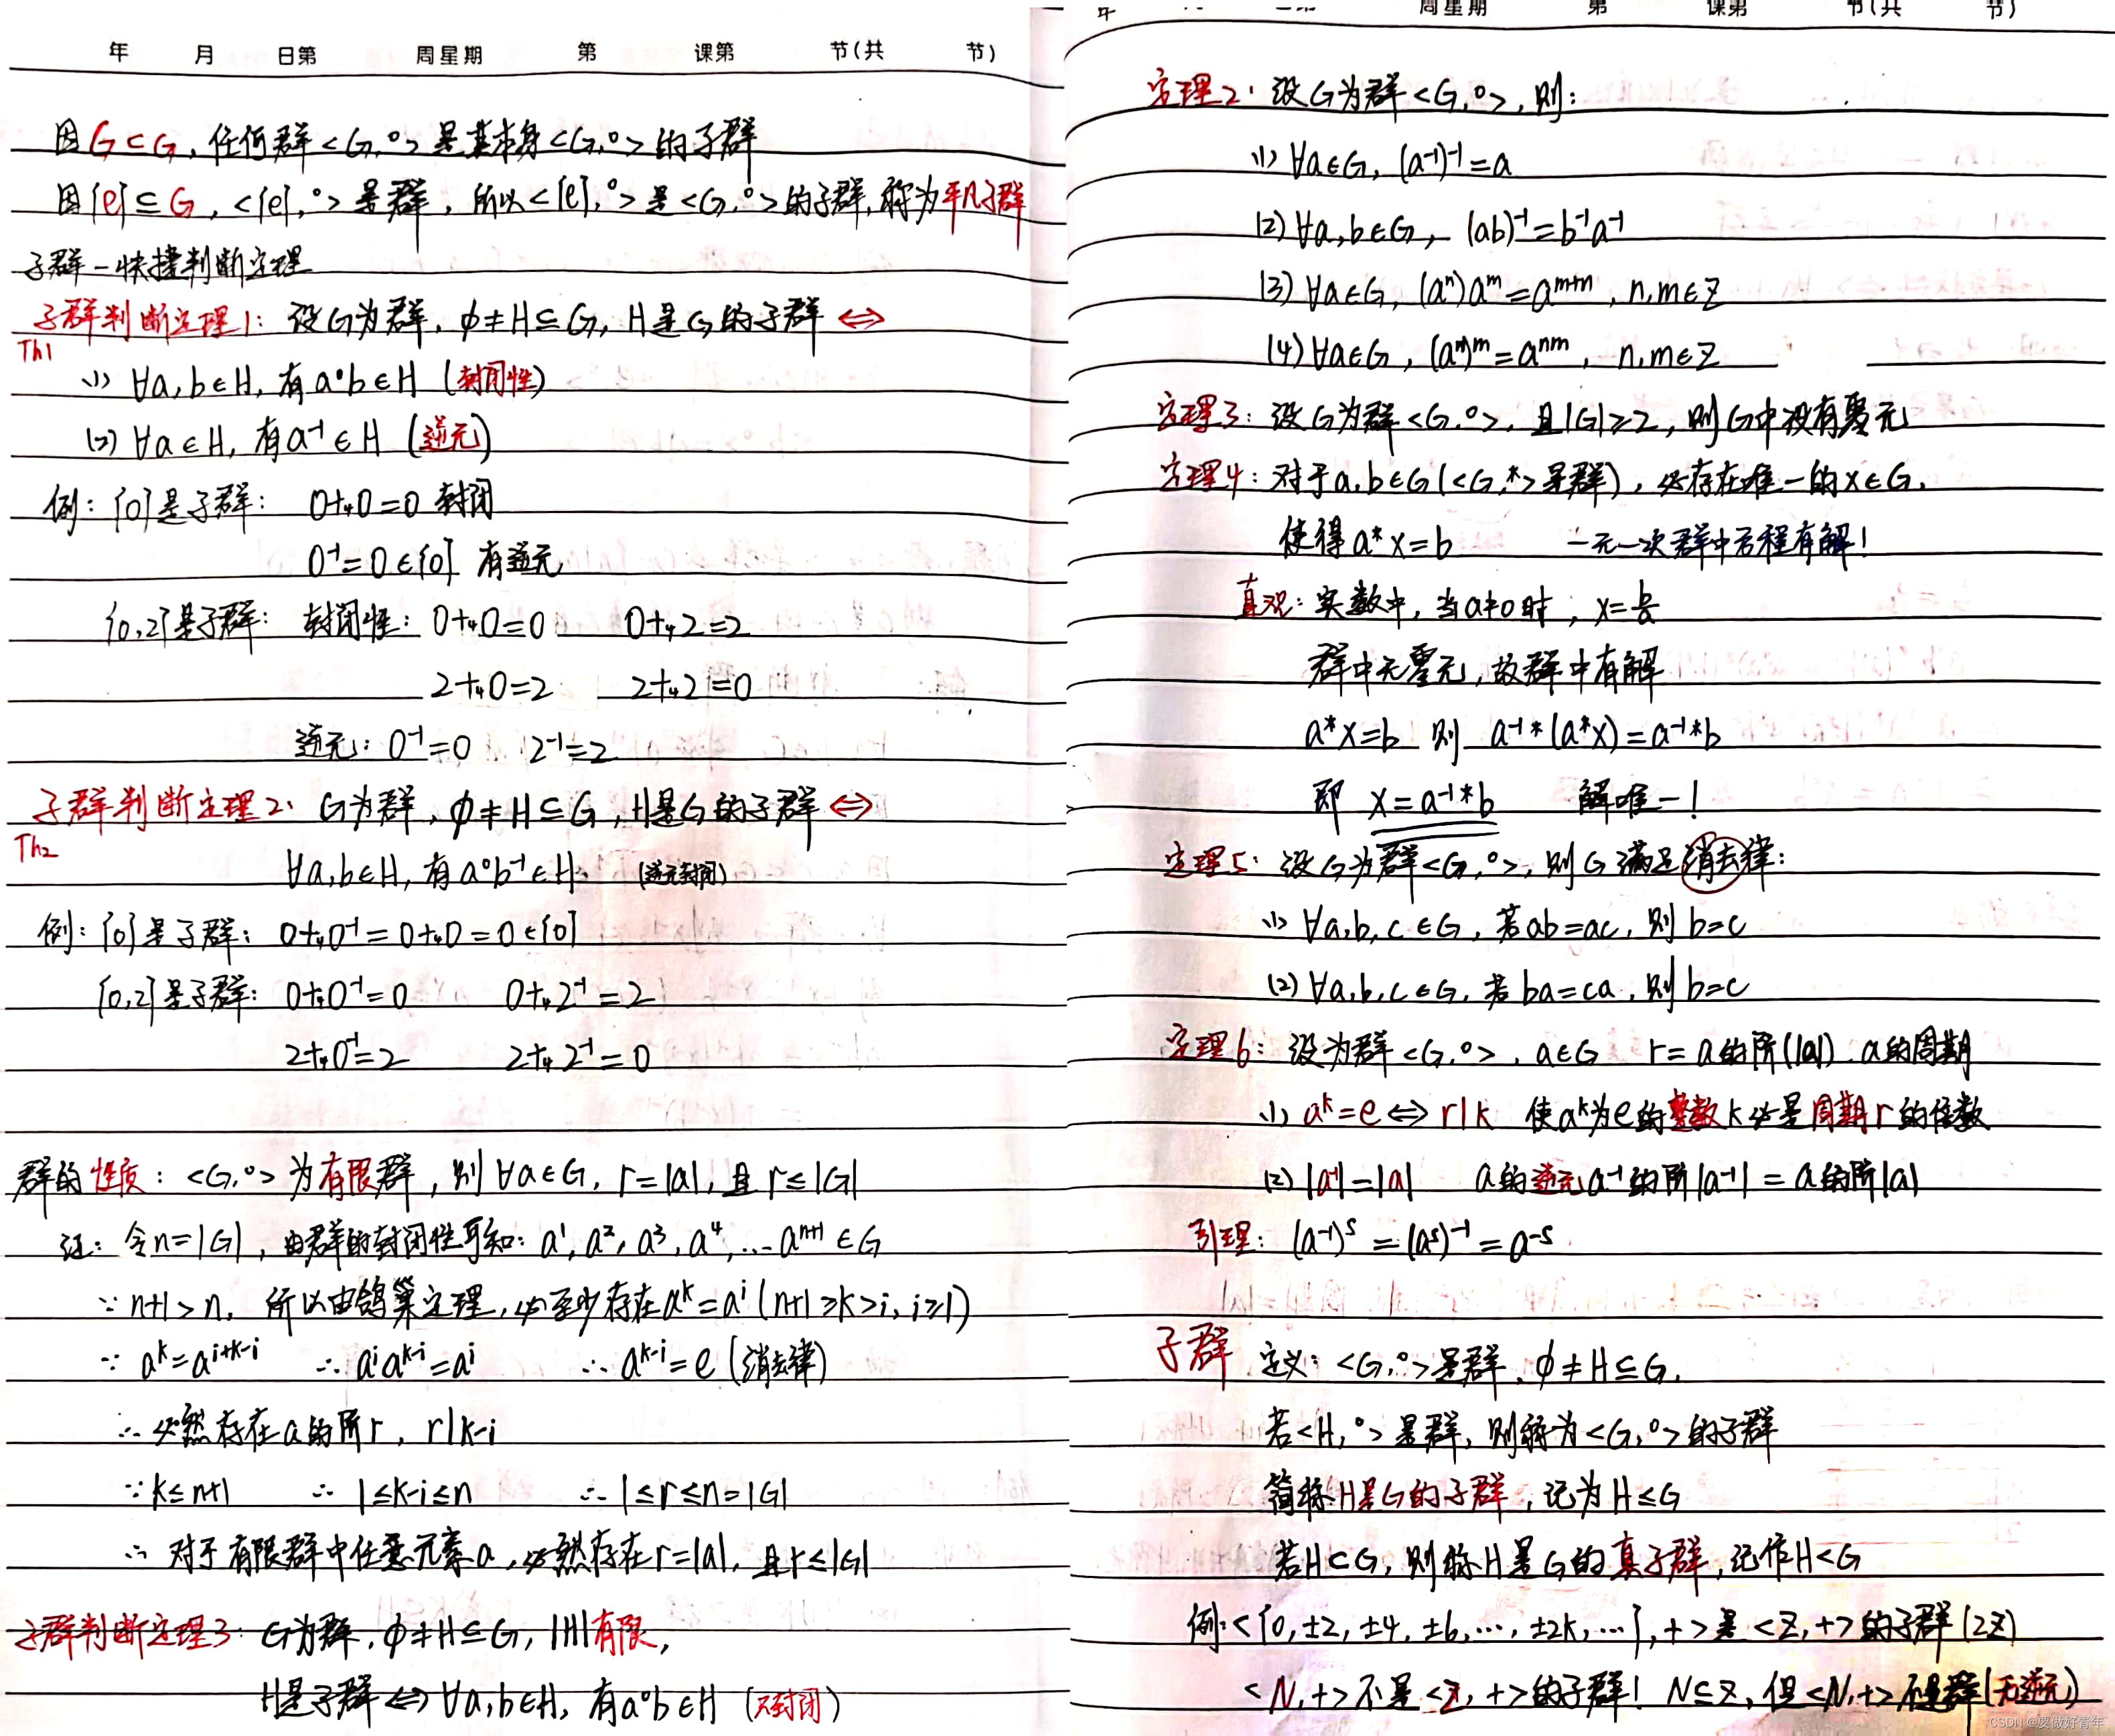 年 月 日第 周星期 第 课第 节(共 节)
因G⊂G, 任何群<G,°>是其本身<G,°>的子群
因{e}⊆G, <{e},°>是群, 所以<{e},°>是<G,°>的子群,称为平凡子群
子群一快捷判断定理
子群判断定理1: 设G为群, φ≠H⊆G, H是G的子群⇔
Th1
(1) ∀a,b∈H, 有a°b∈H (封闭性)
(2) ∀a∈H, 有a⁻¹∈H (逆元)
例: {0}是子群: 0+₄0=0 封闭
0⁻¹=0∈{0} 有逆元
{0,2}是子群: 封闭性: 0+₄0=0 0+₄2=2
2+₄0=2 2+₄2=0
逆元: 0⁻¹=0 2⁻¹=2
子群判断定理2: G为群, φ≠H⊆G, H是G的子群⇔
Th2
∀a,b∈H, 有a°b⁻¹∈H. (逆元封闭)
例: {0}是子群: 0+₄0⁻¹=0+₄0=0∈{0}
{0,2}是子群: 0+₄0⁻¹=0 0+₄2⁻¹=2
2+₄0⁻¹=2 2+₄2⁻¹=0
群的性质: <G,°>为有限群, 则∀a∈G, r=|a|, 且r≤|G|
证: 令n=|G|, 由群的封闭性可知: a¹, a², a³, a⁴, … aⁿ⁺¹∈G
∵ n+1>n, 所以由鸽巢定理, 必至少存在aᵏ=aⁱ (n+1≥k>i, i≥1)
∵ aᵏ=aⁱ⁺ᵏ⁻ⁱ ∴ aⁱaᵏ⁻ⁱ=aⁱ ∴ aᵏ⁻ⁱ=e (消去律)
∴ 必然存在a的阶r, r|k-i
∵ k≤n+1 ∴ 1≤k-i≤n ∴ 1≤r≤n=|G|
∴ 对于有限群中任意元素a, 必然存在r=|a|, 且r≤|G|
子群判断定理3: G为群, φ≠H⊆G, |H|有限,
H是子群⇔∀a,b∈H, 有a°b∈H (只封闭)
年 周星期 第 课第 节(共 节)
定理2: 设G为群<G,°>, 则:
(1) ∀a∈G, (a⁻¹)⁻¹=a
(2) ∀a,b∈G, (ab)⁻¹=b⁻¹a⁻¹
(3) ∀a∈G, (aⁿ)aᵐ=aᵐ⁺ⁿ, n,m∈Z
(4) ∀a∈G, (aⁿ)ᵐ=aⁿᵐ, n,m∈Z
定理3: 设G为群<G,°>, 且|G|≥2, 则G中没有零元
定理4: 对于a,b∈G(<G,*>是群), 必存在唯一的x∈G,
使得a*x=b 一元一次群中方程有解!
直观: 实数中, 当a≠0时, x=b/a
群中无零元, 故群中有解
a*x=b 则 a⁻¹*(a*x)=a⁻¹*b
即 x=a⁻¹*b 解唯一!
定理5: 设G为群<G,°>, 则G满足消去律:
(1) ∀a,b,c∈G, 若ab=ac, 则b=c
(2) ∀a,b,c∈G, 若ba=ca, 则b=c
定理6: 设为群<G,°>, a∈G r=a的阶(|a|), a的周期
(1) aᵏ=e⇔r|k 使aᵏ为e的整数k必是周期r的倍数
(2) |a⁻¹|=|a| a的逆元a⁻¹的阶|a⁻¹|=a的阶|a|
引理: (a⁻¹)ˢ=(aˢ)⁻¹=a⁻ˢ
子群 定义: <G,°>是群, φ≠H⊆G,
若<H,°>是群, 则称为<G,°>的子群
简称H是G的子群, 记为H≤G
若H⊂G, 则称H是G的真子群, 记作H<G
例: <{0,±2,±4,±6,…,±2k,…},+>是<Z,+>的子群(2Z)
<N,+>不是<Z,+>的子群! N⊆Z, 但<N,+>不是群(无逆元)
CSDN @要做好青年